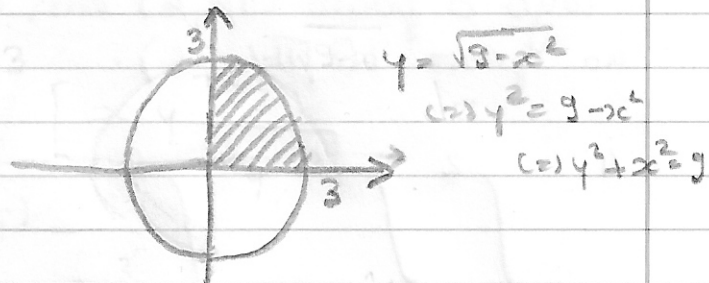 3
y = √9-x²
(=) y² = 9-x²
(=) y²+x²=9
3